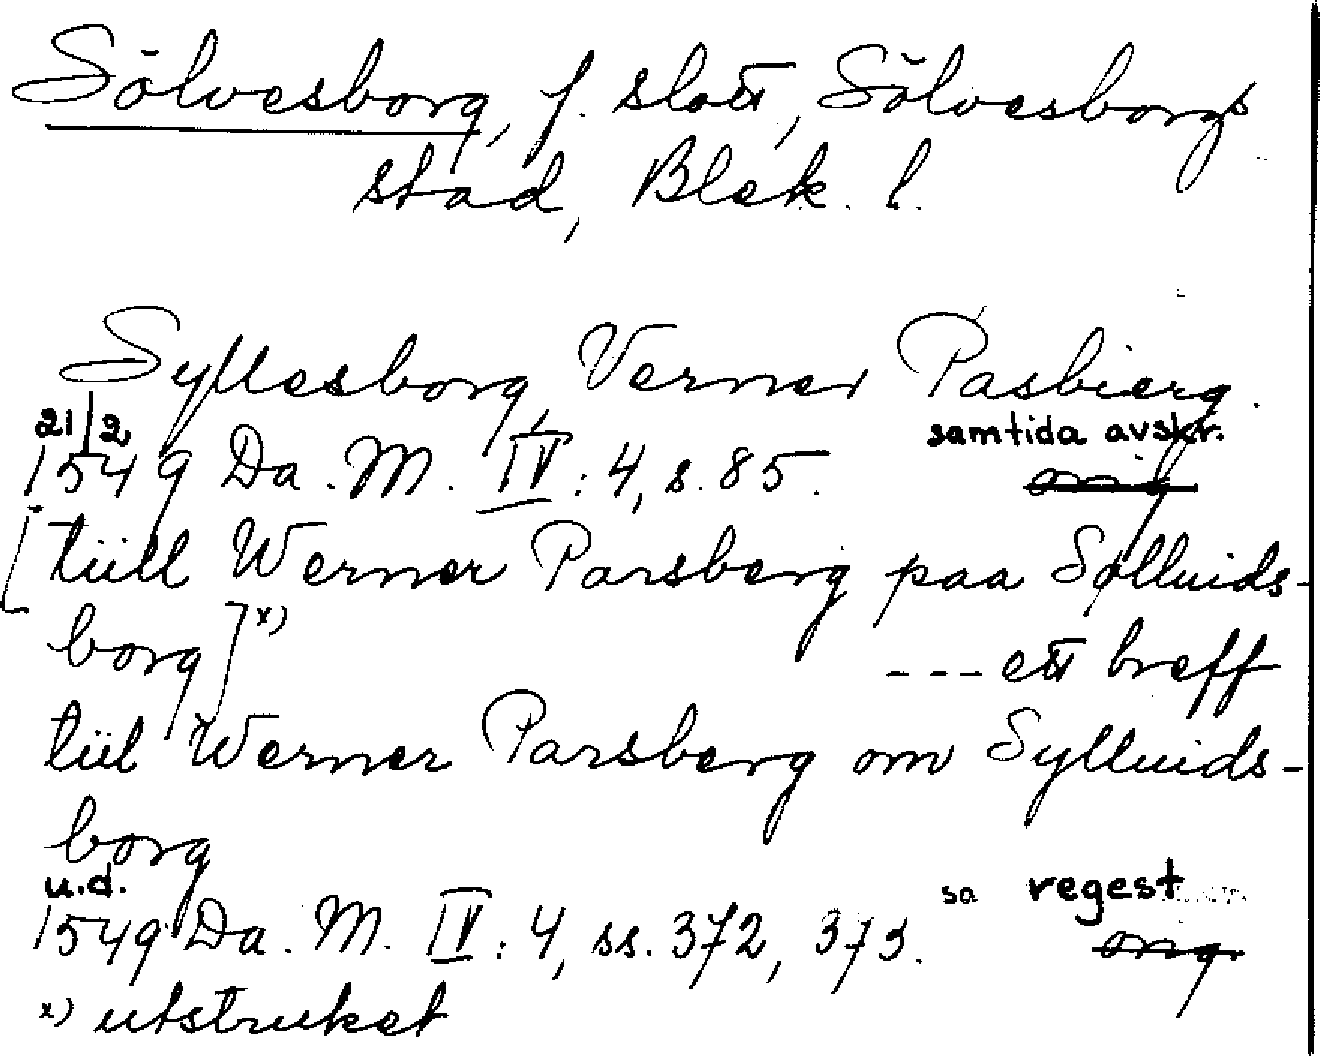 Sölvesborg, f. slott, Sölvesborgs
stad, Blek. l.
Syllesborg, Verner Pasbierg.
21/2 samtida avskr.
1549 Da. M. IV: 4, s. 85. orig
[tiill Werner Parsberg paa Sølluids-
borg]x) --- ett breff
tiil Werner Parsberg om Sylluids-
borg
u.d. sa regest
1549 Da. M. IV: 4, ss. 372, 373. orig.
x) utstruket